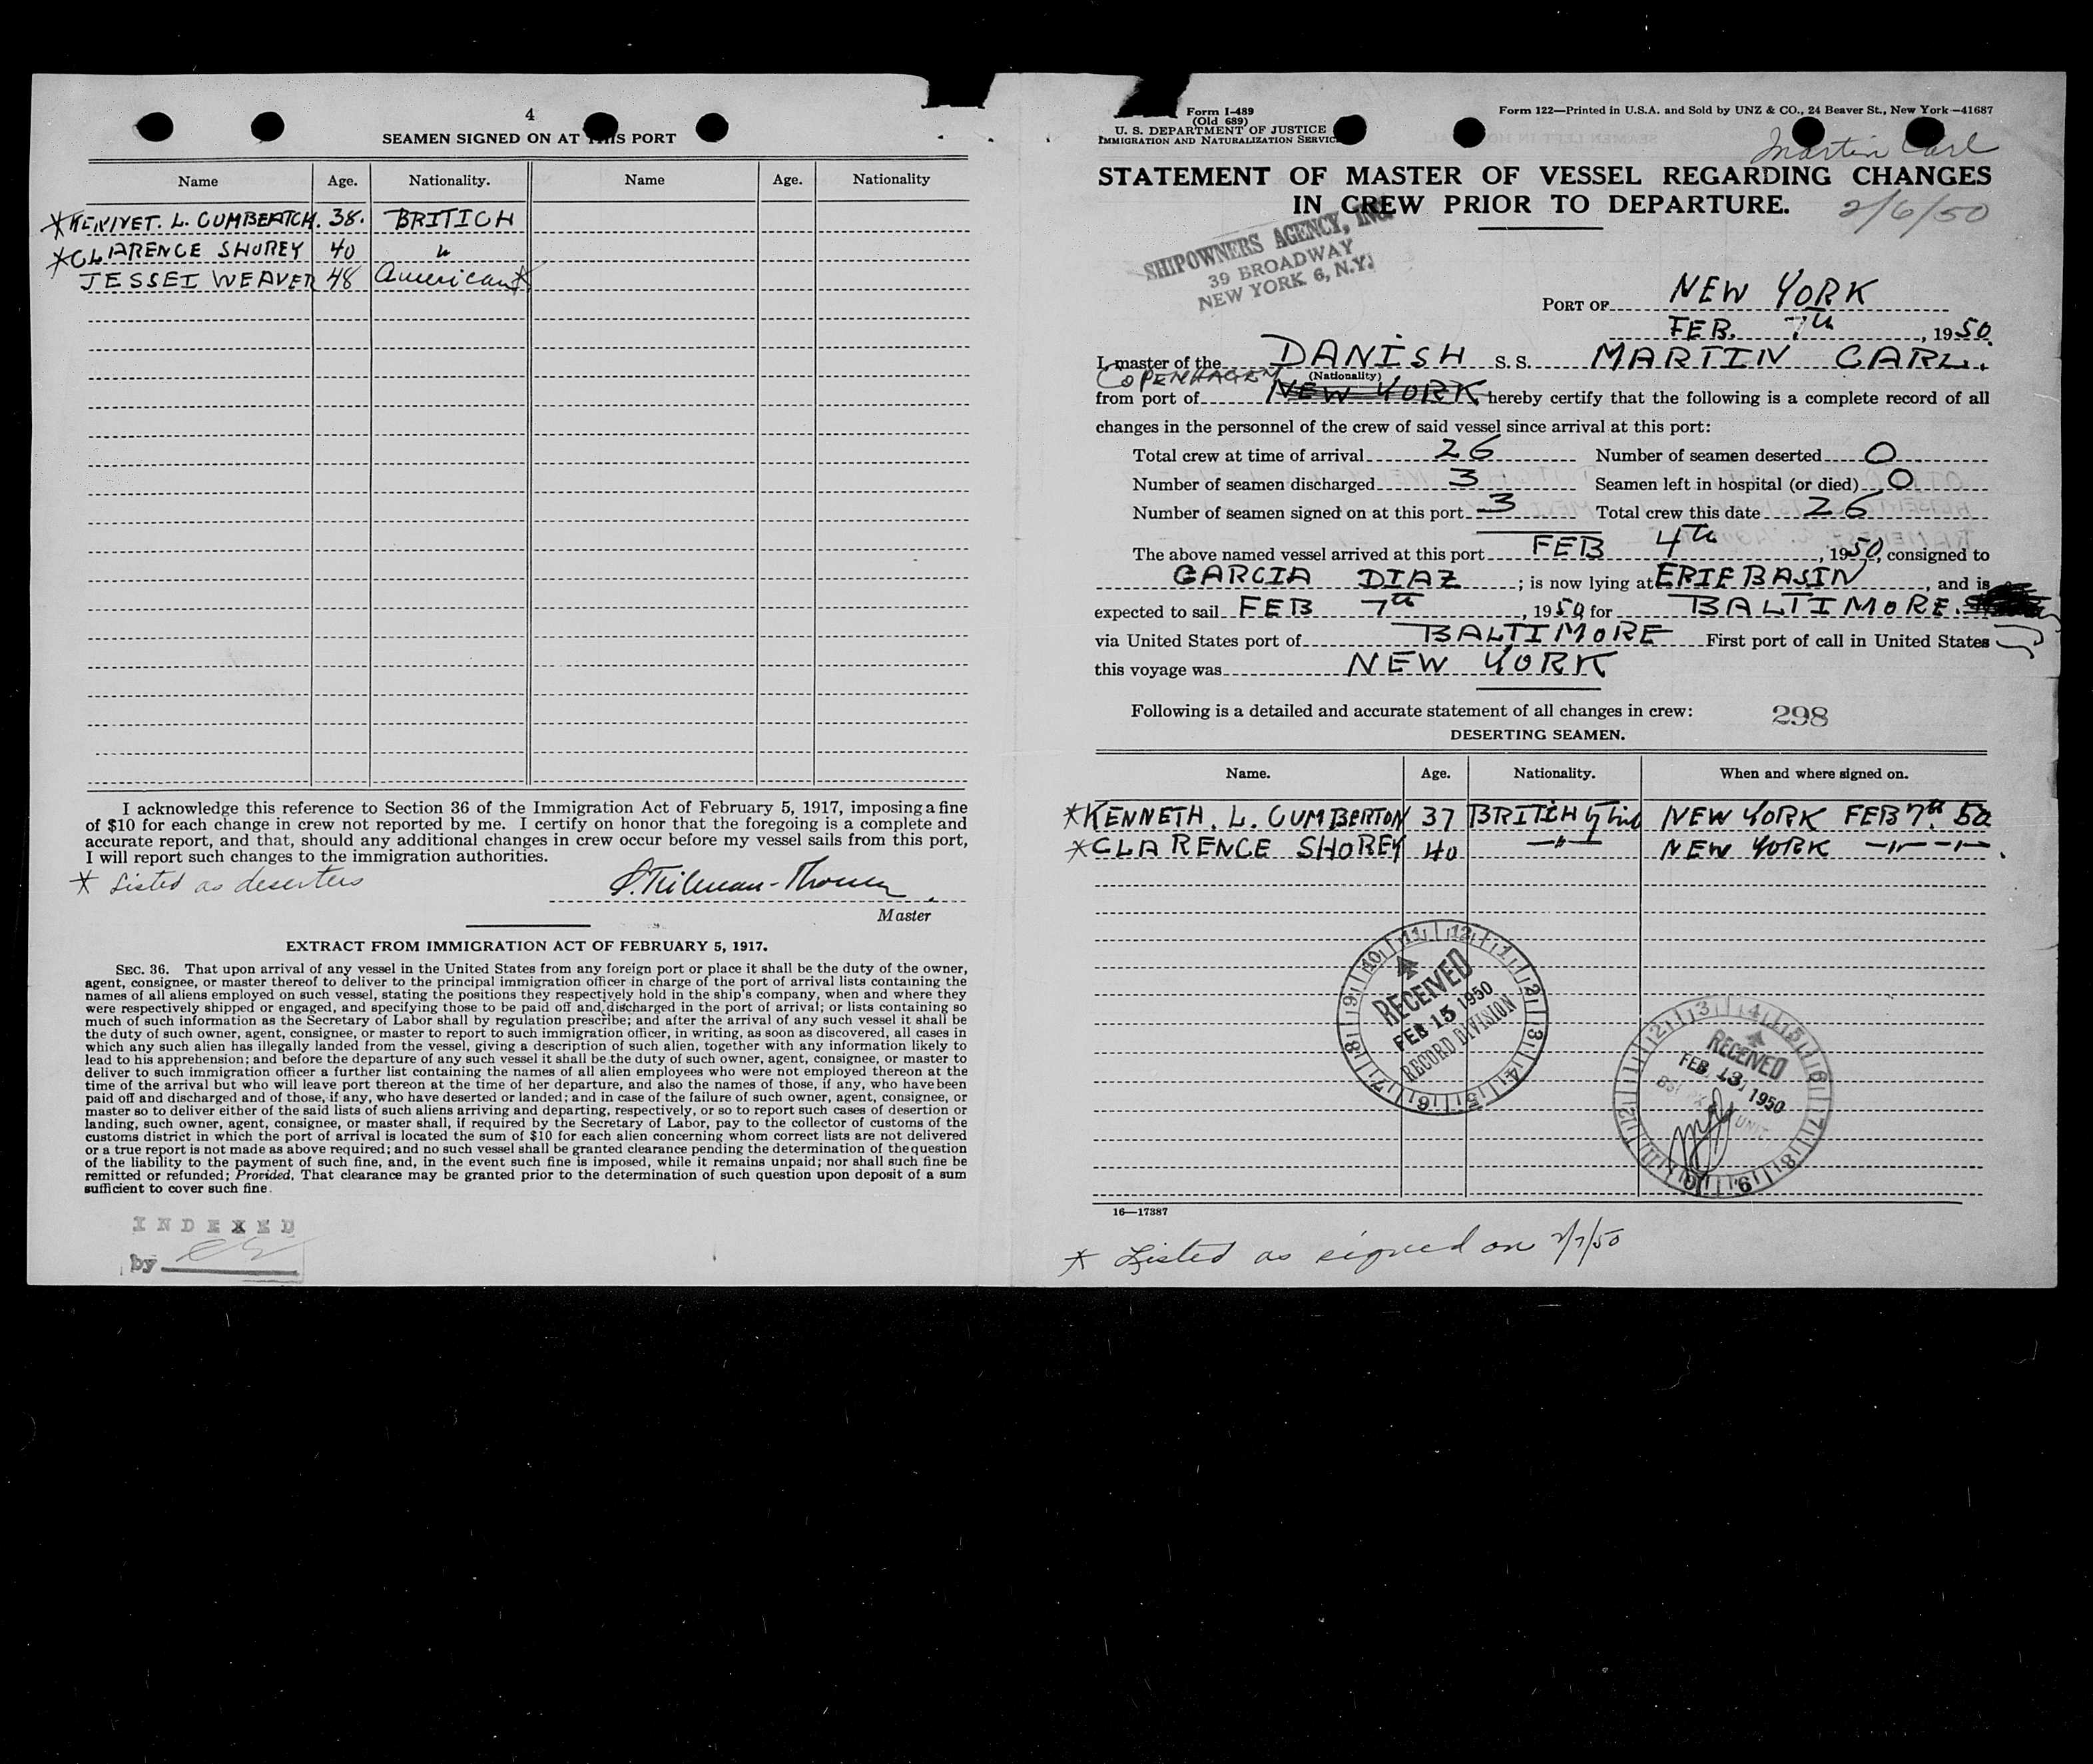 4
SEAMEN SIGNED ON AT THIS PORT
Name Age. Nationality. Name Age. Nationality
*KENNET. L. CUMBERTCH. 38. BRITICH
*CLARENCE SHOREY 40 "
JESSEI WEAVER 48 American*
I acknowledge this reference to Section 36 of the Immigration Act of February 5, 1917, imposing a fine
of $10 for each change in crew not reported by me. I certify on honor that the foregoing is a complete and
accurate report, and that, should any additional changes in crew occur before my vessel sails from this port,
I will report such changes to the immigration authorities.
* Listed as deserters
Master
EXTRACT FROM IMMIGRATION ACT OF FEBRUARY 5, 1917.
SEC. 36. That upon arrival of any vessel in the United States from any foreign port or place it shall be the duty of the owner,
agent, consignee, or master thereof to deliver to the principal immigration officer in charge of the port of arrival lists containing the
names of all aliens employed on such vessel, stating the positions they respectively hold in the ship's company, when and where they
were respectively shipped or engaged, and specifying those to be paid off and discharged in the port of arrival; or lists containing so
much of such information as the Secretary of Labor shall by regulation prescribe; and after the arrival of any such vessel it shall be
the duty of such owner, agent, consignee, or master to report to such immigration officer, in writing, as soon as discovered, all cases in
which any such alien has illegally landed from the vessel, giving a description of such alien, together with any information likely to
lead to his apprehension; and before the departure of any such vessel it shall be the duty of such owner, agent, consignee, or master to
deliver to such immigration officer a further list containing the names of all alien employees who were not employed thereon at the
time of the arrival but who will leave port thereon at the time of her departure, and also the names of those, if any, who have been
paid off and discharged and of those, if any, who have deserted or landed; and in case of the failure of such owner, agent, consignee, or
master so to deliver either of the said lists of such aliens arriving and departing, respectively, or so to report such cases of desertion or
landing, such owner, agent, consignee, or master shall, if required by the Secretary of Labor, pay to the collector of customs of the
customs district in which the port of arrival is located the sum of $10 for each alien concerning whom correct lists are not delivered
or a true report is not made as above required; and no such vessel shall be granted clearance pending the determination of the question
of the liability to the payment of such fine, and, in the event such fine is imposed, while it remains unpaid; nor shall such fine be
remitted or refunded; Provided, That clearance may be granted prior to the determination of such question upon deposit of a sum
sufficient to cover such fine.
INDEXED
by
Form I-489
(Old 689)
U. S. DEPARTMENT OF JUSTICE
IMMIGRATION AND NATURALIZATION SERVICE
Form 122—Printed in U.S.A. and Sold by UNZ & CO., 24 Beaver St., New York—41687
Martin Carl
STATEMENT OF MASTER OF VESSEL REGARDING CHANGES
IN CREW PRIOR TO DEPARTURE.
2/6/50
SHIPOWNERS AGENCY, INC.
39 BROADWAY
NEW YORK 6, N.Y.
PORT OF NEW YORK
FEB. 7th, 1950.
I, master of the DANISH S. S. MARTIN CARL.
(Nationality)
COPENHAGEN
from port of NEW YORK hereby certify that the following is a complete record of all
changes in the personnel of the crew of said vessel since arrival at this port:
Total crew at time of arrival 26 Number of seamen deserted 0
Number of seamen discharged 3 Seamen left in hospital (or died) 0
Number of seamen signed on at this port 3 Total crew this date 26
The above named vessel arrived at this port FEB 4th, 1950, consigned to
GARCIA DIAZ; is now lying at ERIE BASIN, and is
expected to sail FEB 7th, 1950, for BALTIMORE.
via United States port of BALTIMORE First port of call in United States
this voyage was NEW YORK
Following is a detailed and accurate statement of all changes in crew: 298
DESERTING SEAMEN.
Name. Age. Nationality. When and where signed on.
*KENNETH. L. CUMBERTON 37 BRITICH NEW YORK FEB 7th. 50
*CLARENCE SHOREY 40 —"— NEW YORK —"— —"—.
RECEIVED
FEB 15 1950
RECORD DIVISION
RECEIVED
FEB 13 1950
UNIT
16—17387
* Listed as signed on 2/7/50